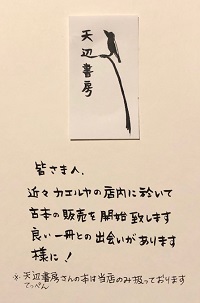 天辺書房
皆さま人、
近々カエルヤの店内に於いて
古本の販売を開始致します
良い一冊との出会いがあります
様に!
※天辺書房さんの本は当店のみ扱っております
てっぺん